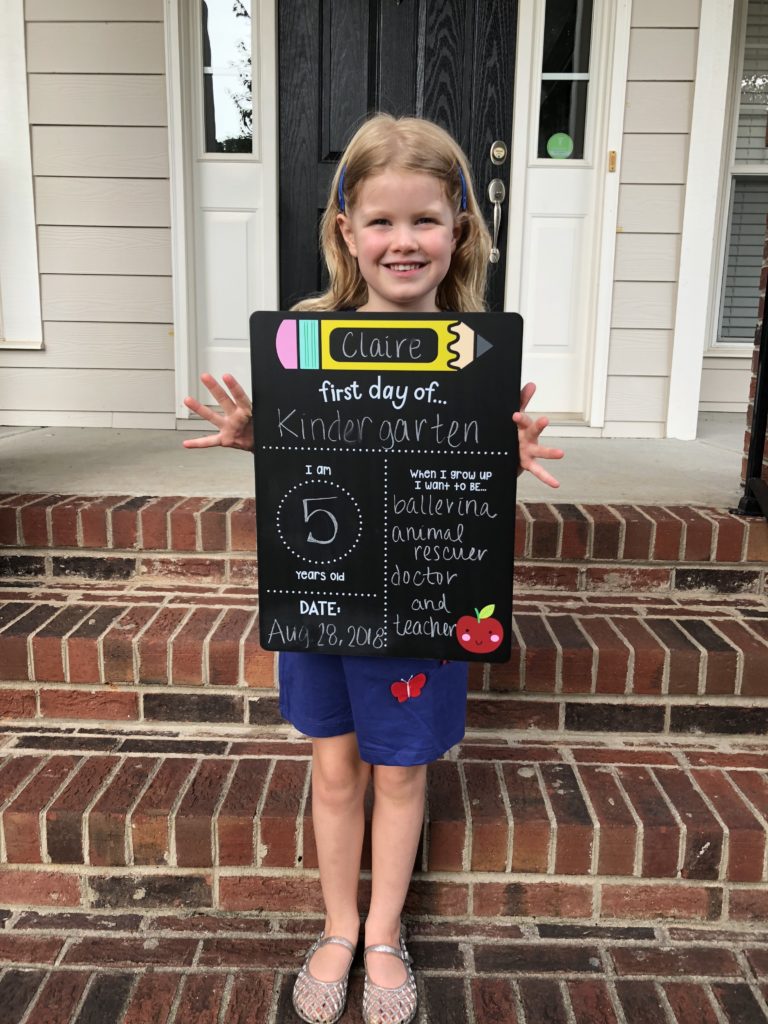 Claire
first day of...
Kindergarten
I am
5
years old
DATE:
Aug. 28, 2018
When I grow up
I want to BE...
ballerina
animal
rescuer
doctor
and
teacher